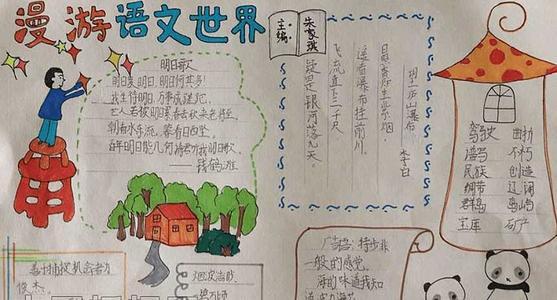 漫游语文世界
主编:
明日歌
明日复明日,明日何其多!
我生待明日,万事成蹉跎。
世人若被明日累,春去秋来老将至。
朝看水东流,暮看日西坠。
百年明日能几何?请君听我明日歌。
——钱鹤滩
望庐山瀑布
李白
日照香炉生紫烟
遥看瀑布挂前川。
飞流直下三千尺
疑是银河落九天。
驾驶
谱写 不朽
民族 创造
绸带 辽阔
群岛 岛屿
宝库 矿产
广告语:特步非
一般的感觉。
海的味道我知
俊杰。